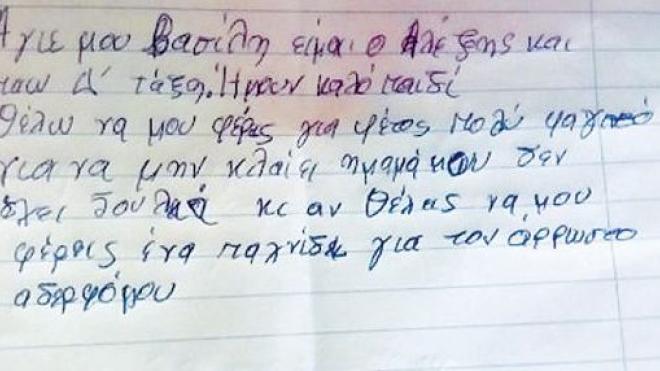 Άγιε μου Βασίλη είμαι ο Αλέξης και
παω Δ' τάξη. Ήμουν καλό παιδί
θέλω να μου φέρεις για φέτος πολύ φαγητό
για να μην κλαίει η μαμά μου δεν
έχει δουλειά κι αν θέλεις να μου
φέρεις ένα παιχνίδι για τον άρρωστο
αδερφό μου